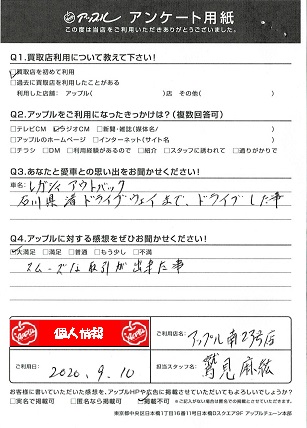 アップル アンケート用紙
この度は当店をご利用いただきありがとうございました。
Q1.買取店利用について教えて下さい!
買取店を初めて利用
過去に買取店を利用したことがある
利用した店舗: アップル( )店 その他( )
Q2.アップルをご利用になったきっかけは?(複数回答可)
テレビCM ラジオCM 新聞・雑誌(媒体名/ )
アップルのホームページ インターネット(サイト名 )
チラシ DM 利用経験があるので 紹介 スタッフに誘われて 通りがかりで
Q3.あなたと愛車との思い出をお聞かせください!
車名:
レガシィ アウトバック
石川県 渚ドライブウェイまで、ドライブした事
Q4.アップルに対する感想をぜひお聞かせください!
大満足 満足 普通 もう少し 不満
スムーズな取引が出来た事
個人情報
ご利用店名:
アップル南23号店
ご利用日:
2020.9.10
担当スタッフ名:
鷲見 麻紘
お客様に書いていただいた感想を、アップルHPや広告に掲載させていただいてもよろしいでしょうか?
実名で掲載可 匿名なら掲載可 掲載不可
東京都中央区日本橋1丁目16番11号日本橋Dスクエア9F アップルチェーン本部